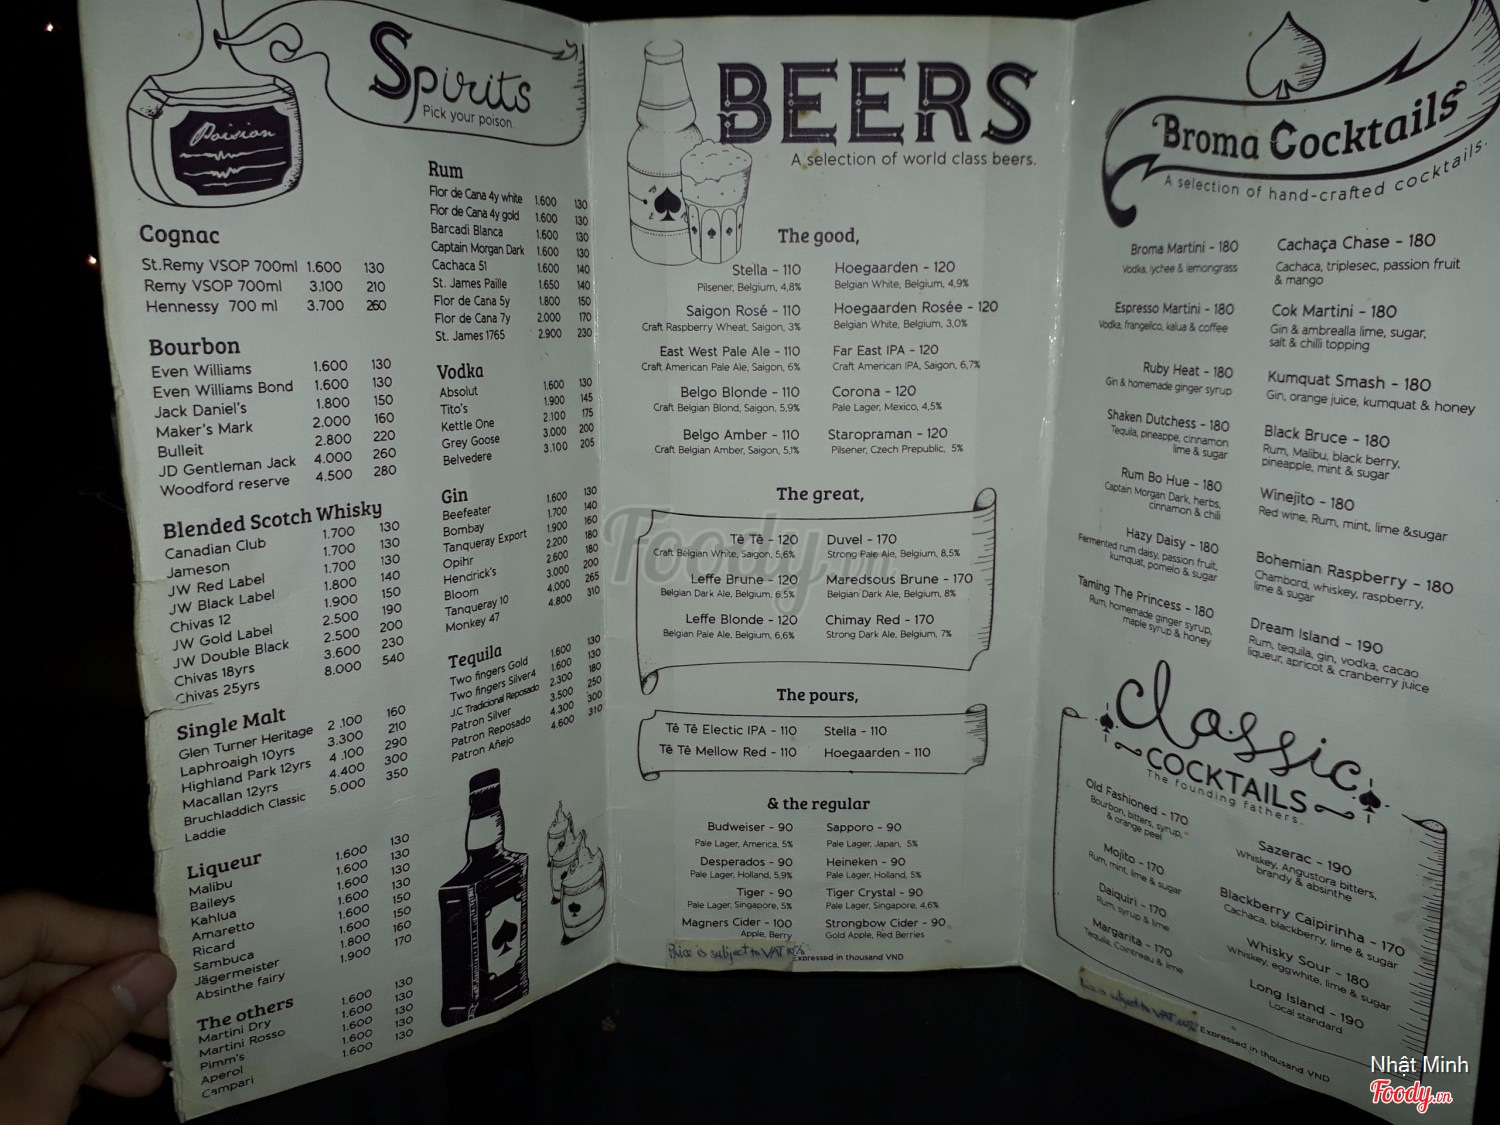 Poision
Spirits
Pick your poison.
Cognac
St.Remy VSOP 700ml 1.600 130
Remy VSOP 700ml 3.100 210
Hennessy 700 ml 3.700 260
Bourbon
Even Williams 1.600 130
Even Williams Bond 1.600 130
Jack Daniel's 1.800 150
Maker's Mark 2.000 160
Bulleit 2.800 220
JD Gentleman Jack 4.000 260
Woodford reserve 4.500 280
Blended Scotch Whisky
Canadian Club 1.700 130
Jameson 1.700 130
JW Red Label 1.700 130
JW Black Label 1.800 140
Chivas 12 1.900 150
JW Gold Label 2.500 190
JW Double Black 2.500 200
Chivas 18yrs 3.600 230
Chivas 25yrs 8.000 540
Single Malt
Glen Turner Heritage 2.100 160
Laphroaigh 10yrs 3.300 210
Highland Park 12yrs 4.100 290
Macallan 12yrs 4.400 300
Bruchladdich Classic 5.000 350
Laddie
Liqueur
Malibu 1.600 130
Baileys 1.600 130
Kahlua 1.600 130
Amaretto 1.600 130
Ricard 1.600 150
Sambuca 1.500 150
Jägermeister 1.800 160
Absinthe fairy 1.900 170
The others
Martini Dry 1.600 130
Martini Rosso 1.600 130
Pimm's 1.600 130
Aperol 1.600 130
Campari 1.600 130
Rum
Flor de Cana 4y white 1.600 130
Flor de Cana 4y gold 1.600 130
Barcadi Blanca 1.600 130
Captain Morgan Dark 1.600 130
Cachaca 51 1.600 140
St. James Paille 1.650 140
Flor de Cana 5y 1.800 150
Flor de Cana 7y 2.000 170
St. James 1765 2.900 230
Vodka
Absolut 1.600 130
Tito's 1.900 145
Kettle One 2.100 175
Grey Goose 3.000 200
Belvedere 3.100 205
Gin
Beefeater 1.600 130
Bombay 1.700 140
Tanqueray Export 1.900 160
Opihr 2.200 180
Hendrick's 2.600 180
Bloom 3.000 200
Tanqueray 10 4.000 265
Monkey 47 4.800 310
Tequila
Two fingers Gold 1.600 130
Two fingers Silver4 1.600 130
J.C Tradicional Reposado 2.300 180
Patron Silver 3.500 250
Patron Reposado 4.300 300
Patron Añejo 4.600 310
BEERS
A selection of world class beers.
The good,
Stella - 110
Pilsener, Belgium, 4,8%
Hoegaarden - 120
Belgian White, Belgium, 4,9%
Saigon Rosé - 110
Craft Raspberry Wheat, Saigon, 3%
Hoegaarden Rosée - 120
Belgian White, Belgium, 3,0%
East West Pale Ale - 110
Craft American Pale Ale, Saigon, 6%
Far East IPA - 120
Craft American IPA, Saigon, 6,7%
Belgo Blonde - 110
Craft Belgian Blond, Saigon, 5,9%
Corona - 120
Pale Lager, Mexico, 4,5%
Belgo Amber - 110
Craft Belgian Amber, Saigon, 5,1%
Staropraman - 120
Pilsener, Czech Prepublic, 5%
The great,
Tê Tê - 120
Craft Belgian White, Saigon, 5,6%
Duvel - 170
Strong Pale Ale, Belgium, 8,5%
Leffe Brune - 120
Belgian Dark Ale, Belgium, 6.5%
Maredsous Brune - 170
Belgian Dark Ale, Belgium, 8%
Leffe Blonde - 120
Belgian Pale Ale, Belgium, 6,6%
Chimay Red - 170
Strong Dark Ale, Belgium, 7%
The pours,
Tê Tê Electic IPA - 110
Stella - 110
Tê Tê Mellow Red - 110
Hoegaarden - 110
& the regular
Budweiser - 90
Pale Lager, America, 5%
Sapporo - 90
Pale Lager, Japan, 5%
Desperados - 90
Pale Lager, Holland, 5,9%
Heineken - 90
Pale Lager, Holland, 5%
Tiger - 90
Pale Lager, Singapore, 5%
Tiger Crystal - 90
Pale Lager, Singapore, 4,6%
Magners Cider - 100
Apple, Berry
Strongbow Cider - 90
Gold Apple, Red Berries
Price is subject to VAT 10%
Expressed in thousand VND
Broma Cocktails
A selection of hand-crafted cocktails.
Broma Martini - 180
Vodka, lychee & lemongrass
Espresso Martini - 180
Vodka, frangelico, kalua & coffee
Ruby Heat - 180
Gin & homemade ginger syrup
Shaken Dutchess - 180
Tequila, pineappe, cinnamon
lime & sugar
Rum Bo Hue - 180
Captain Morgan Dark, herbs,
cinnamon & chili
Hazy Daisy - 180
Fermented rum daisy, passion fruit,
kumquat, pomelo & sugar
Taming The Princess - 180
Rum, homemade ginger syrup,
maple syrup & honey
Cachaça Chase - 180
Cachaca, triplesec, passion fruit
& mango
Cok Martini - 180
Gin & ambrealla lime, sugar,
salt & chilli topping
Kumquat Smash - 180
Gin, orange juice, kumquat & honey
Black Bruce - 180
Rum, Malibu, black berry,
pineapple, mint & sugar
Winejito - 180
Red wine, Rum, mint, lime &sugar
Bohemian Raspberry - 180
Chambord, whiskey, raspberry,
lime & sugar
Dream Island - 190
Rum, tequila, gin, vodka, cacao
liqueur, apricot & cranberry juice
Classic
COCKTAILS
The founding fathers.
Old Fashioned - 170
Bourbon, bitters, syrup,
& orange peel
Mojito - 170
Rum, mint, lime & sugar
Daiquiri - 170
Rum, syrup & lime
Margarita - 170
Tequila, Cointreau & lime
Sazerac - 190
Whiskey, Angustora bitters,
brandy & absinthe
Blackberry Caipirinha - 170
Cachaca, blackberry, lime & sugar
Whisky Sour - 180
Whiskey, eggwhite, lime & sugar
Long Island - 190
Local standard
Price is subject to VAT 10%
Expressed in thousand VND
Foody.vn
Nhật Minh
Foody.vn